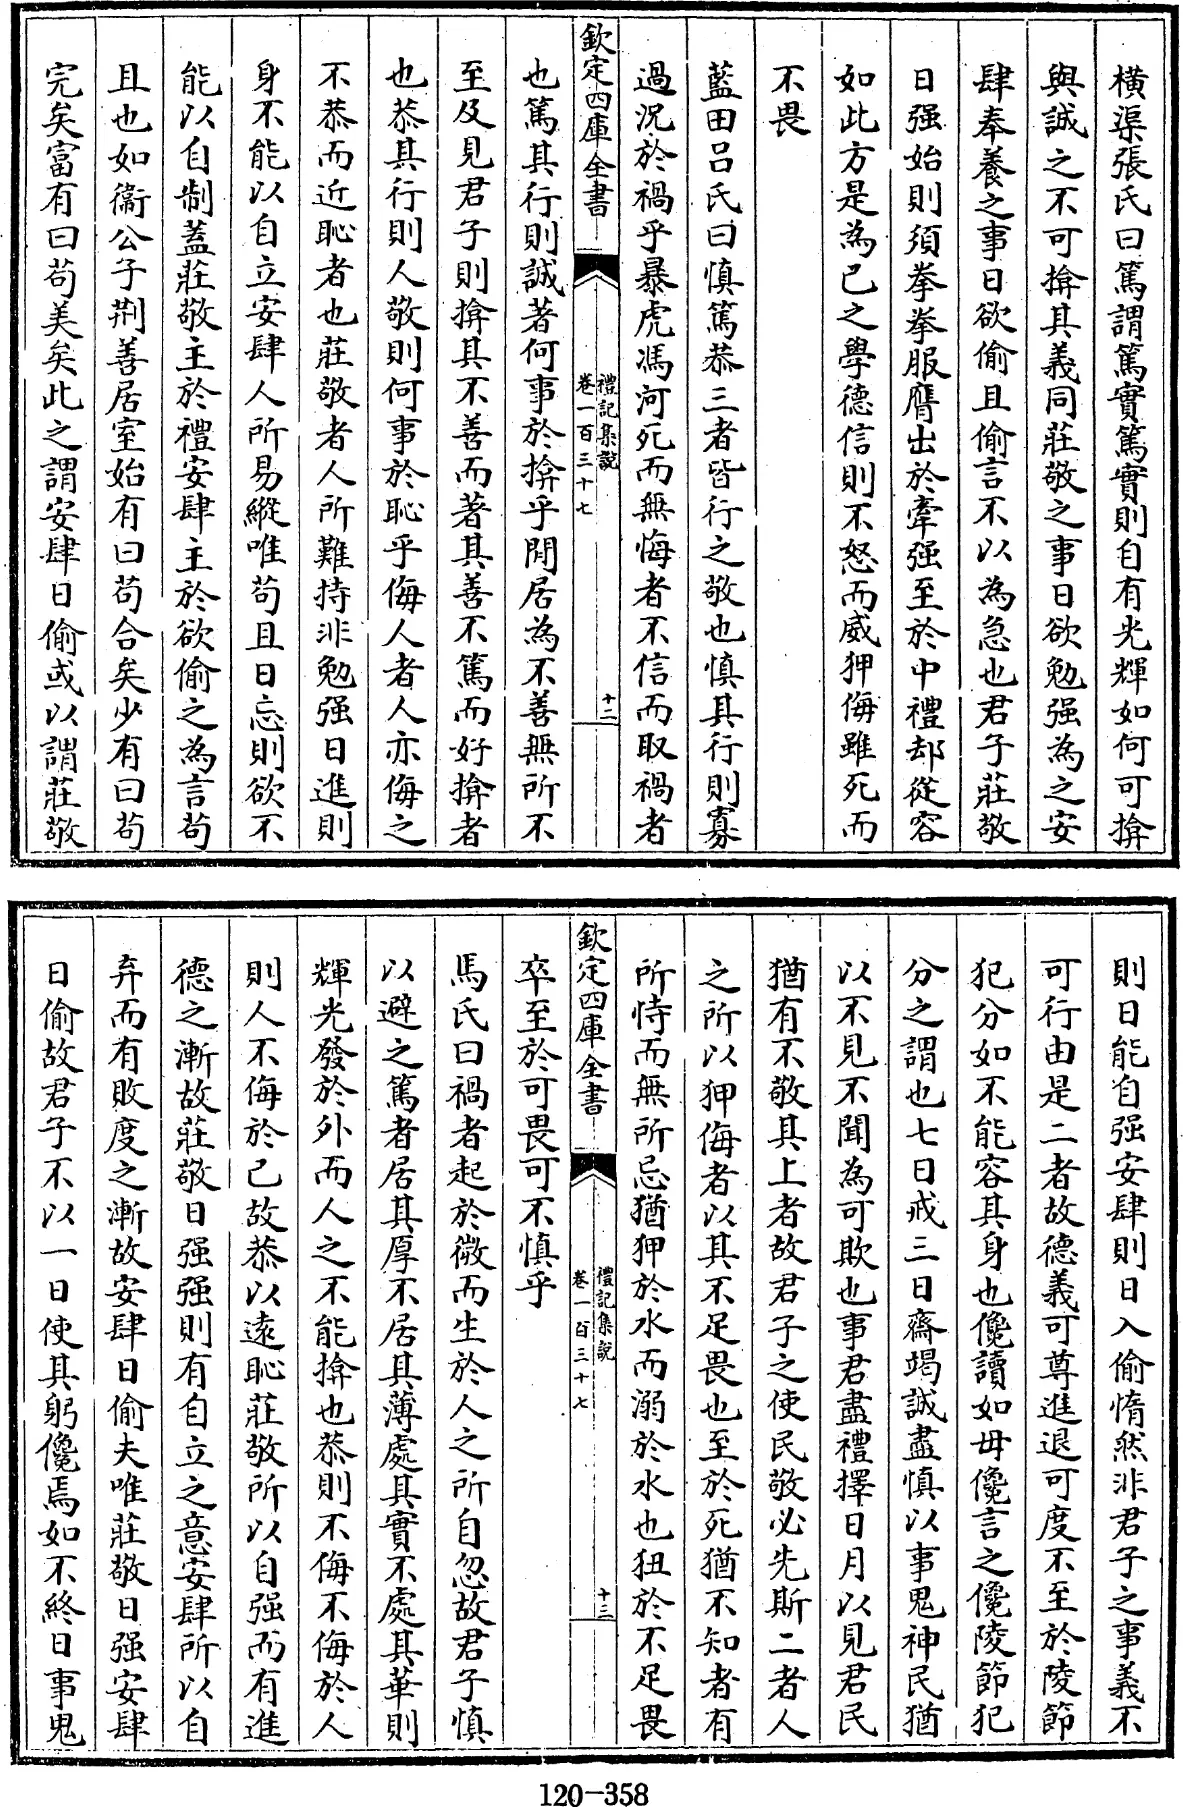 橫渠張氏曰篤謂篤實篤實則自有光輝如何可揜
與誠之不可揜其義同莊敬之事日欲勉强為之安
肆奉養之事日欲偷且偷言不以為急也君子莊敬
日强始則須拳拳服膺出於牽强至於中禮却從容
如此方是為己之學德信則不怒而威狎侮雖死而
不畏
藍田吕氏曰慎篤恭三者皆行之敬也慎其行則寡
過況於禍乎暴虎馮河死而無悔者不信而取禍者
欽定四庫全書
禮記集說
卷一百三十七
十二
也篤其行則誠著何事於揜乎閒居為不善無所不
至及見君子則揜其不善而著其善不篤而好揜者
也恭其行則人敬則何事於恥乎侮人者人亦侮之
不恭而近恥者也莊敬者人所難持非勉强日進則
身不能以自立安肆人所易縱唯茍且日忘則欲不
能以自制蓋莊敬主於禮安肆主於欲偷之為言茍
且也如衞公子荆善居室始有曰茍合矣少有曰茍
完矣富有曰茍美矣此之謂安肆日偷或以謂莊敬
則日能自强安肆則日入偷惰然非君子之事義不
可行由是二者故德義可尊進退可度不至於陵節
犯分如不能容其身也儳讀如毋儳言之儳陵節犯
分之謂也七日戒三日齋竭誠盡慎以事鬼神民猶
以不見不聞為可欺也事君盡禮擇日月以見君民
猶有不敬其上者故君子之使民敬必先斯二者人
之所以狎侮者以其不足畏也至於死猶不知者有
所恃而無所忌猶狎於水而溺於水也狃於不足畏
欽定四庫全書
禮記集說
卷一百三十七
十三
卒至於可畏可不慎乎
馬氏曰禍者起於微而生於人之所自忽故君子慎
以避之篤者居其厚不居其薄處其實不處其華則
輝光發於外而人之不能揜也恭則不侮不侮於人
則人不侮於己故恭以遠恥莊敬所以自强而有進
德之漸故莊敬日强强則有自立之意安肆所以自
弃而有敗度之漸故安肆日偷夫唯莊敬日强安肆
日偷故君子不以一日使其躬儳焉如不終日事鬼
120-358